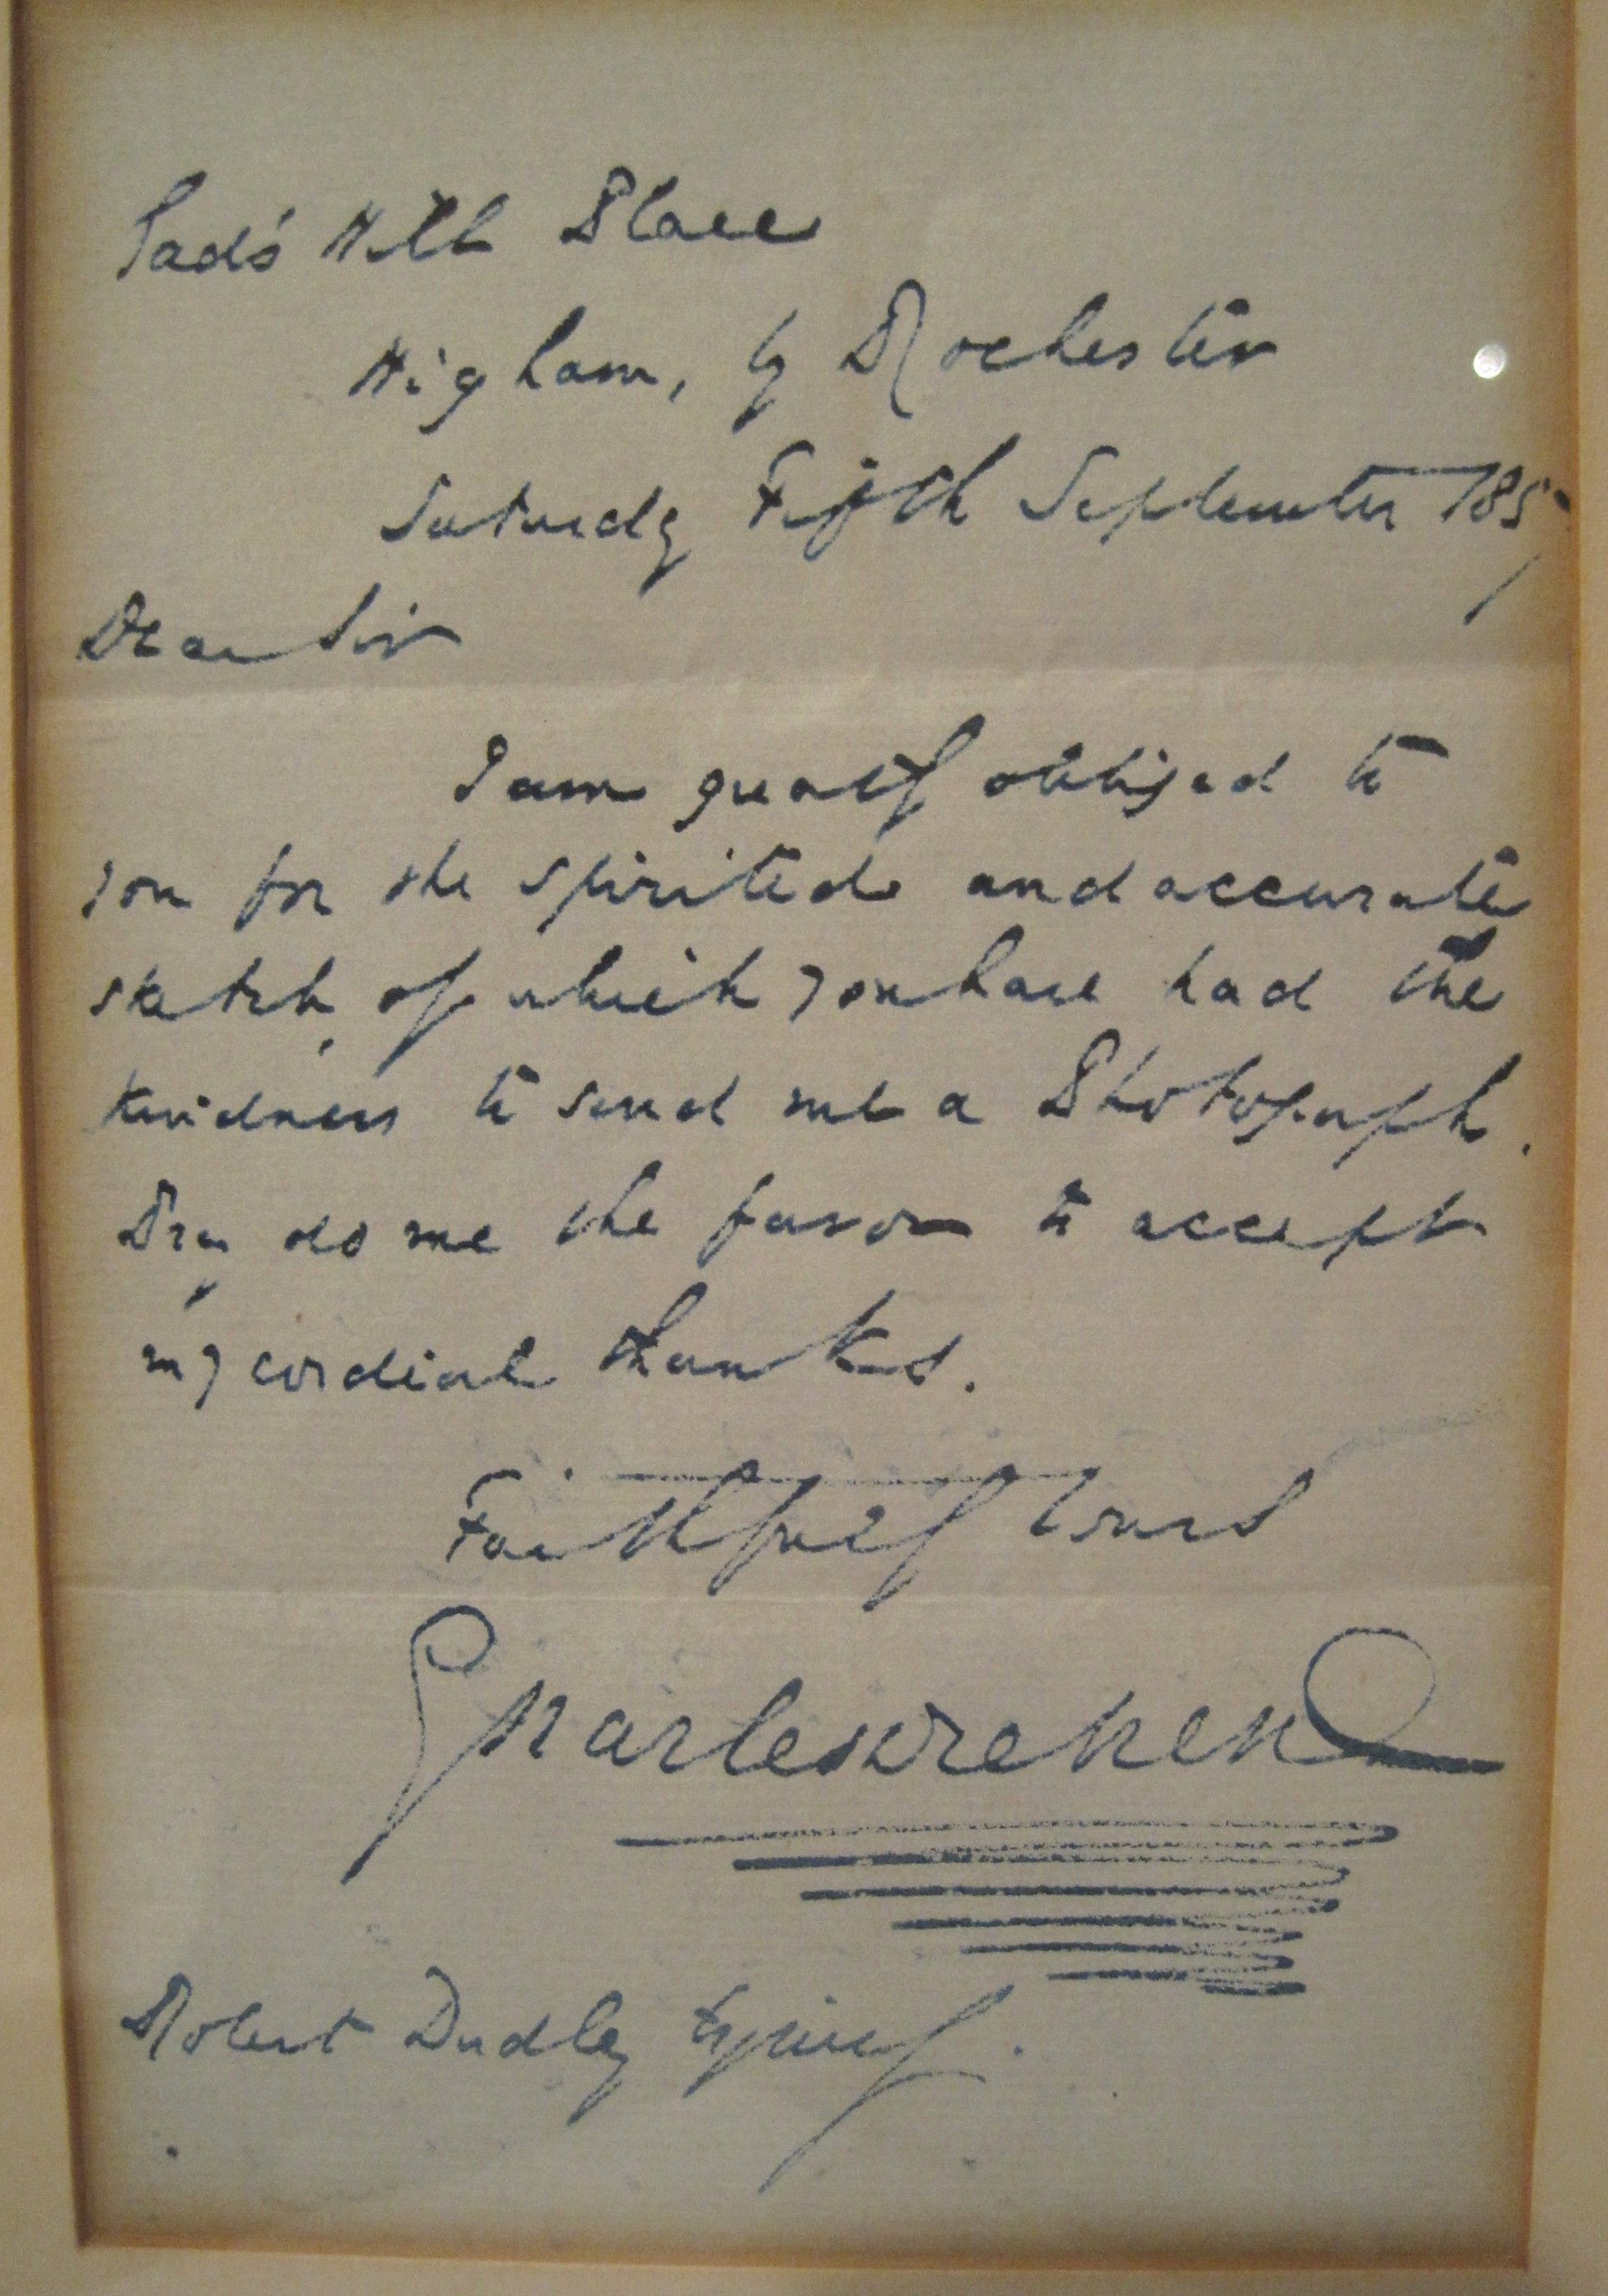 Gad's Hill Place
Higham, by Rochester
Saturday Fifth September 1857
Dear Sir
I am greatly obliged to
you for the spirited and accurate
sketch, of which you have had the
kindness to send me a Photograph.
Pray do me the favor to accept
my cordial thanks.
Faithfully Yours
Charles Dickens
Robert Dudley Esquire.